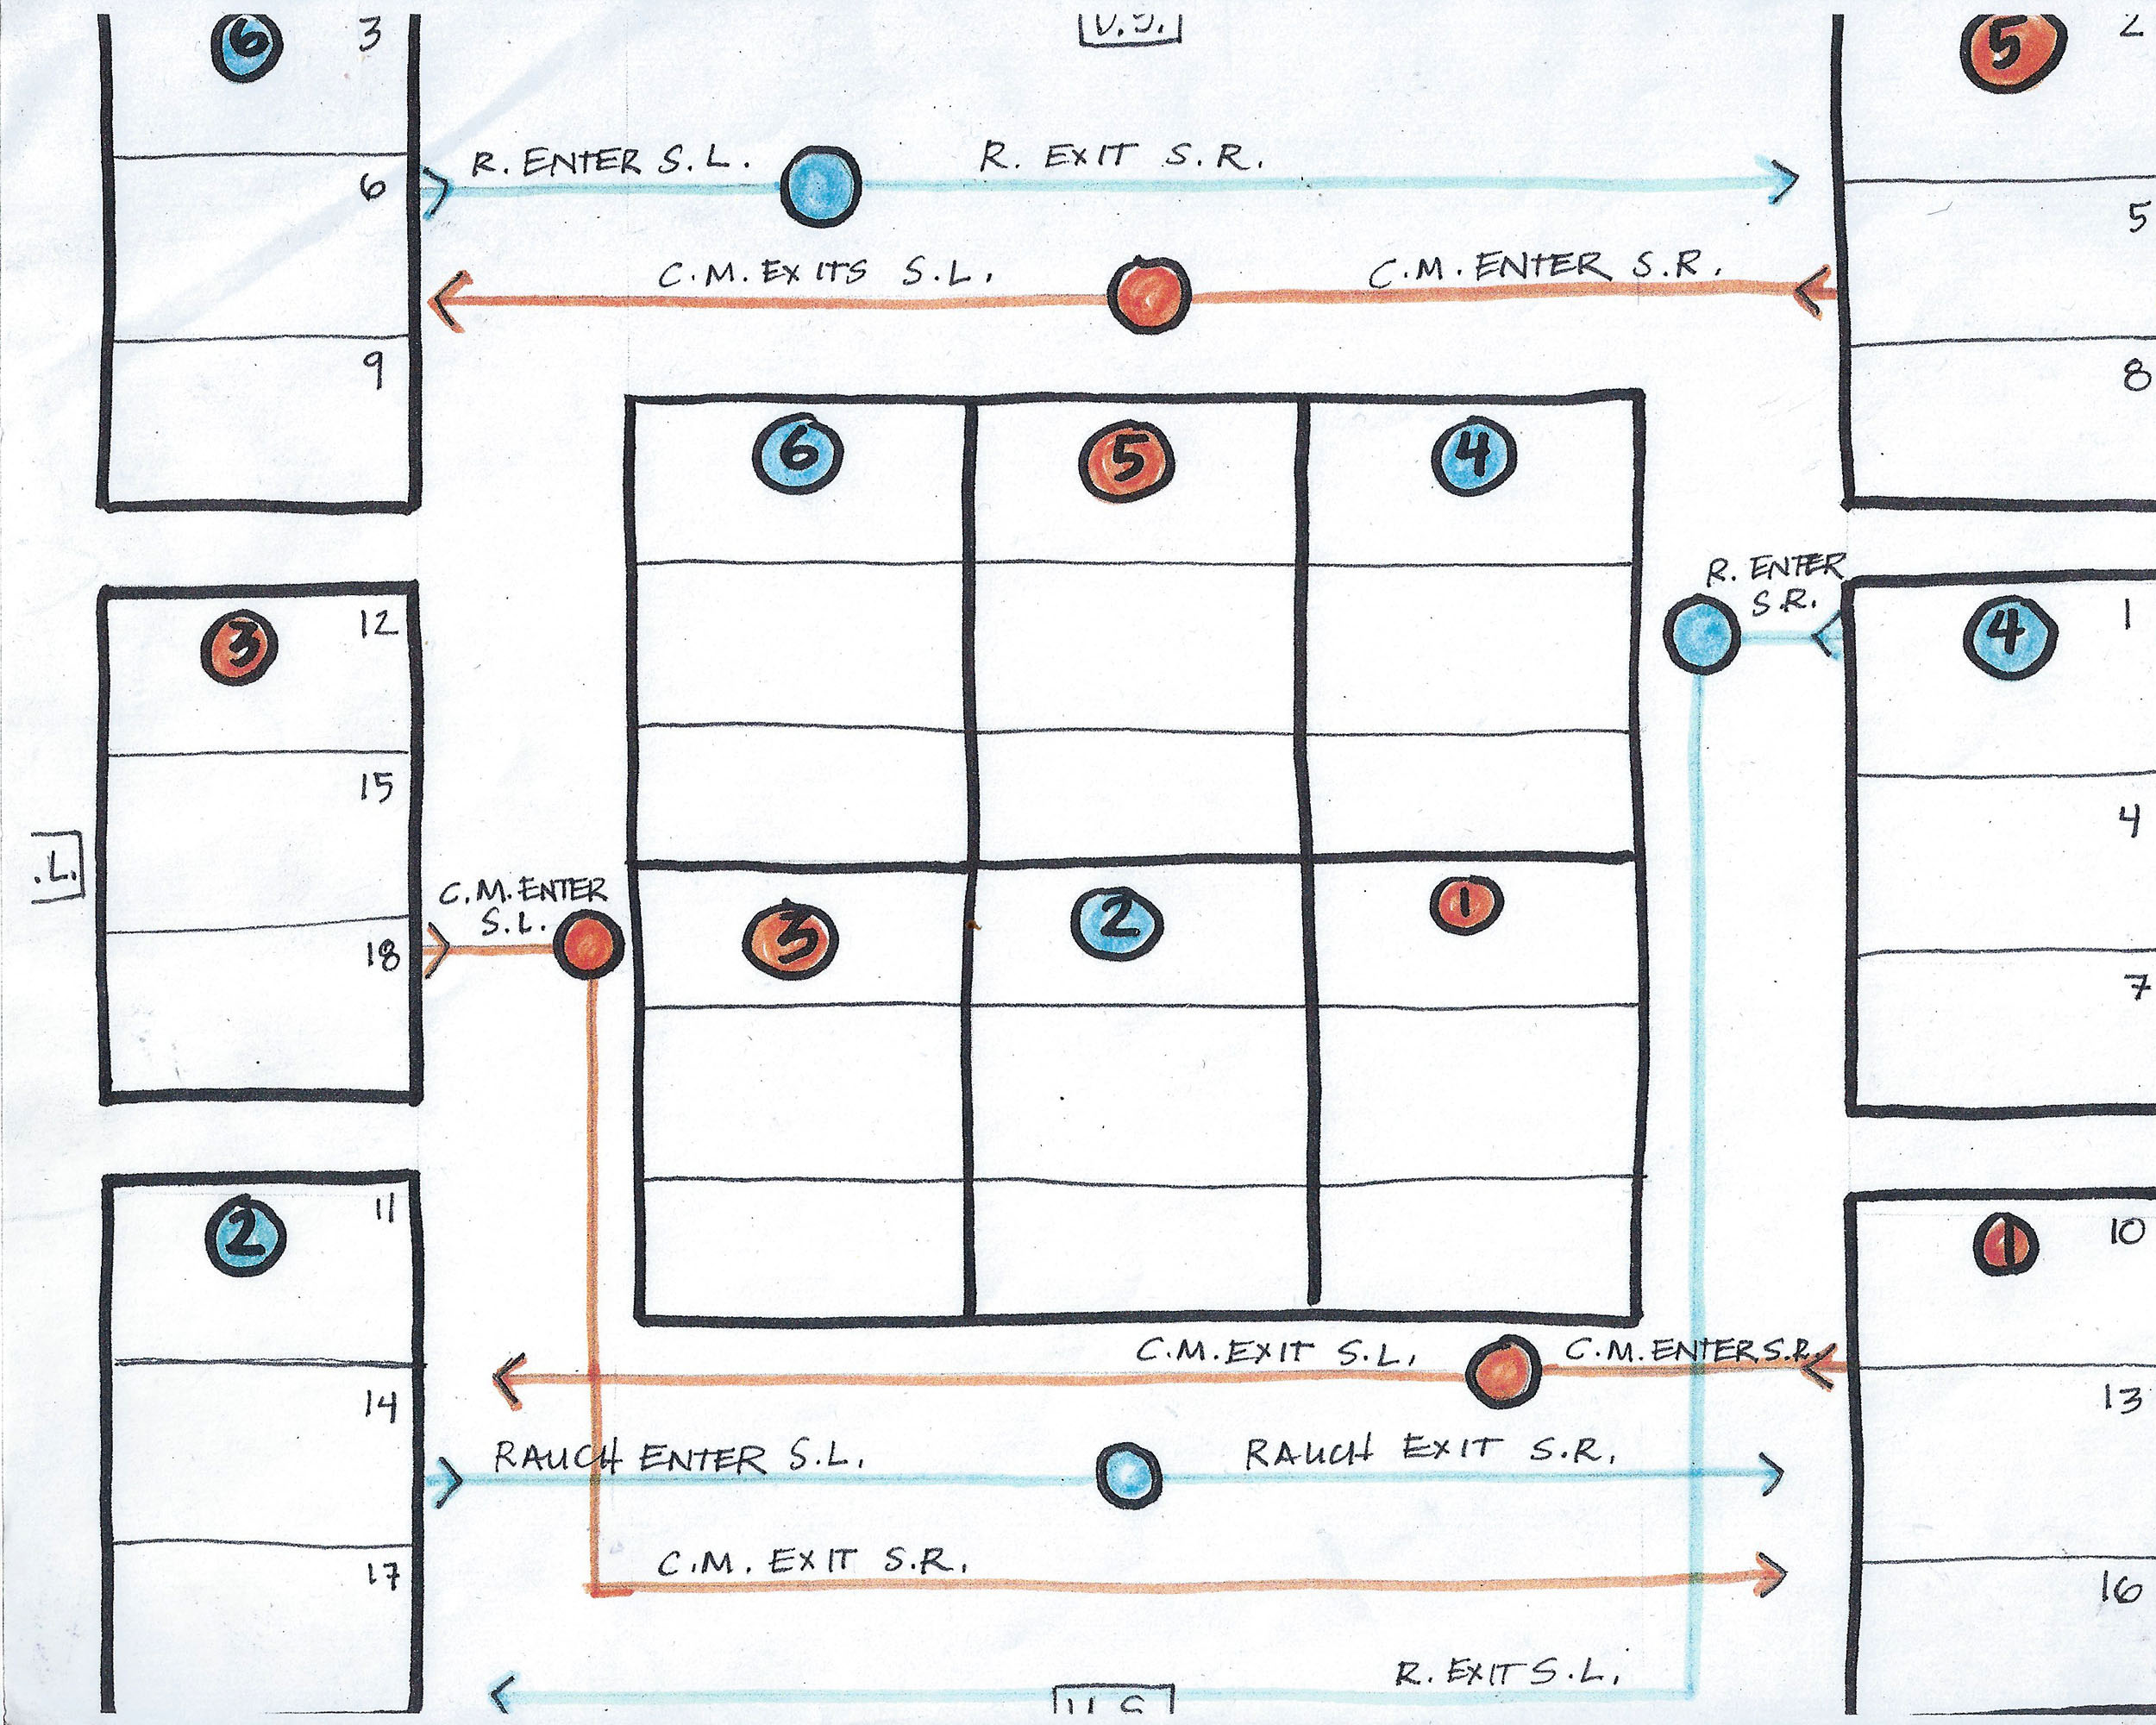 6 3
U.S.
5 2
R. ENTER S.L.
R. EXIT S.R.
6
5
C.M. EXITS S.L.
C.M. ENTER S.R.
9
8
6 5 4
R. ENTER
S.R.
3 12
4 1
15
4
.L.
C.M. ENTER
S.L.
3 2 1
18
7
2 11
1 10
C.M. EXIT S.L.
C.M. ENTER S.R.
14
13
RAUCH ENTER S.L.
RAUCH EXIT S.R.
C.M. EXIT S.R.
17
16
R. EXIT S.L.